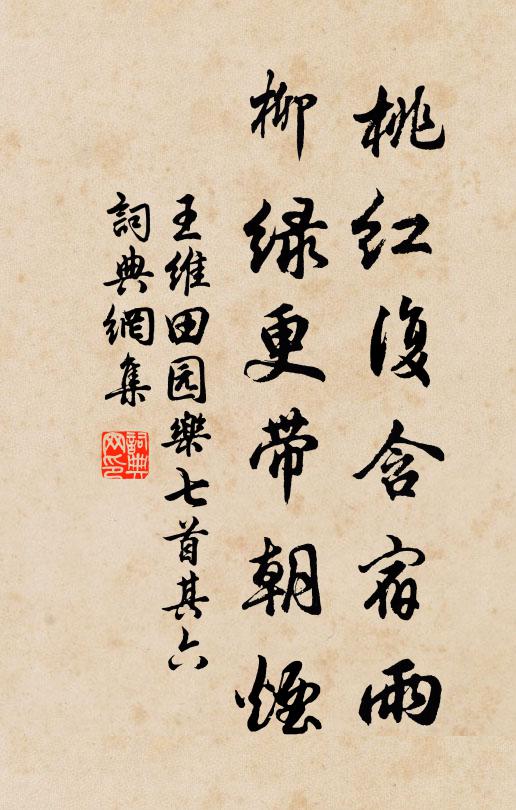 桃红復含宿雨
柳绿更带朝煙
王維田园樂七首其六
詞典網集
詞典网印